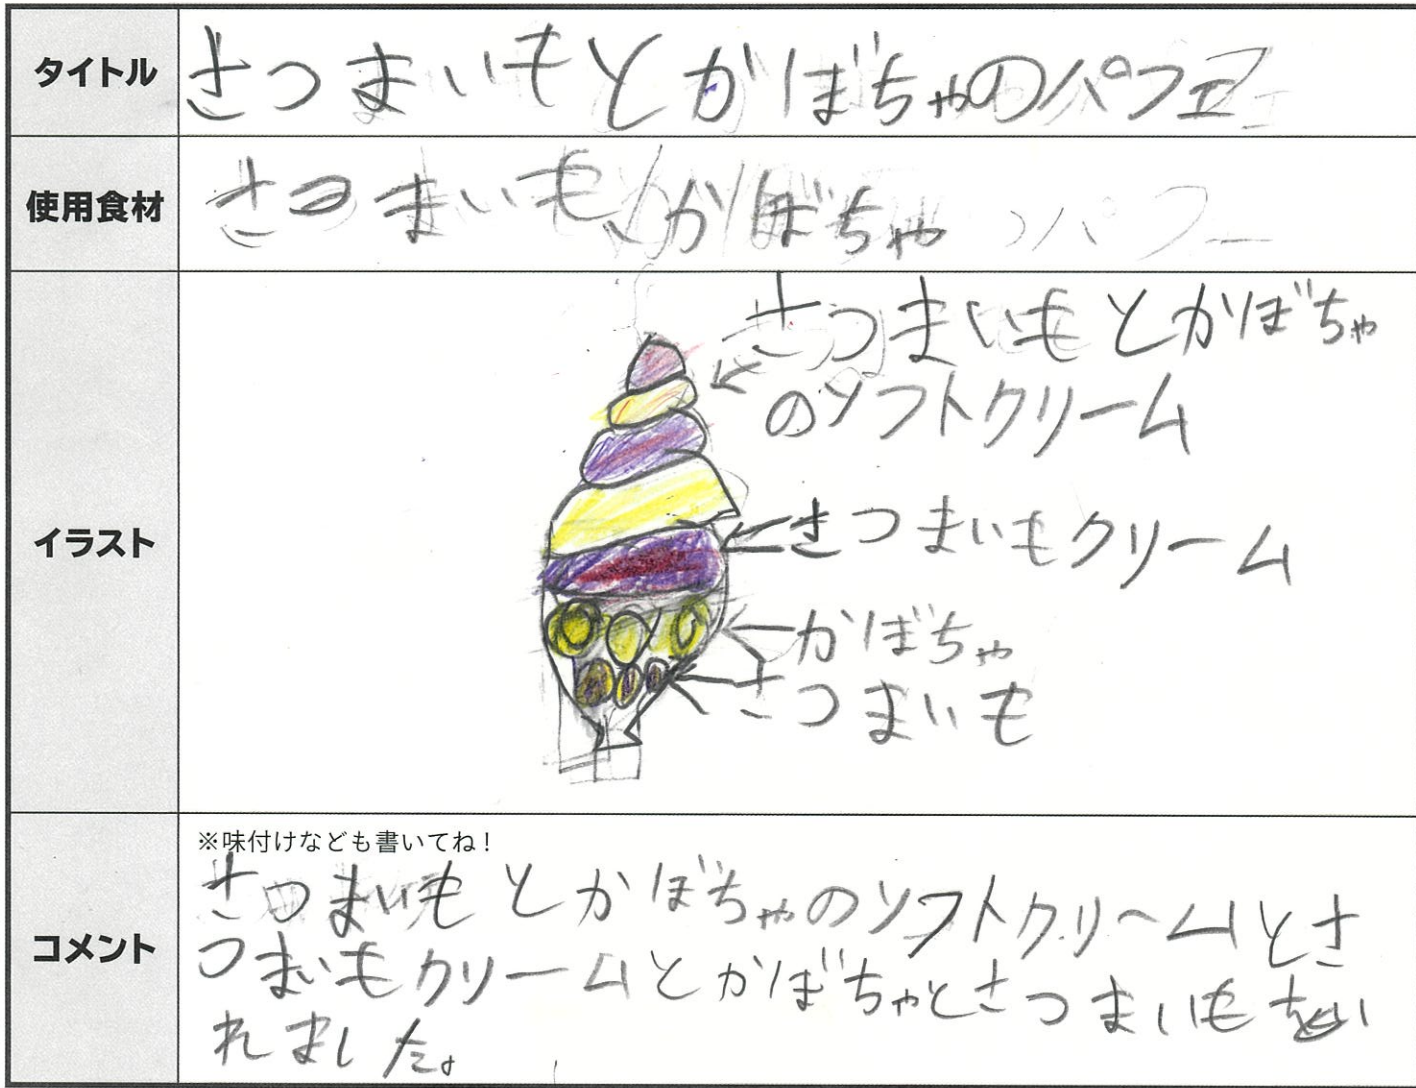 タイトル
さつまいもとかぼちゃのパフェ
使用食材
さつまいも、かぼちゃ
イラスト
さつまいもとかぼちゃ
のソフトクリーム
さつまいもクリーム
かぼちゃ
さつまいも
コメント
※味付けなども書いてね！
さつまいもとかぼちゃのソフトクリームとさ
つまいもクリームとかぼちゃとさつまいもをい
れました。